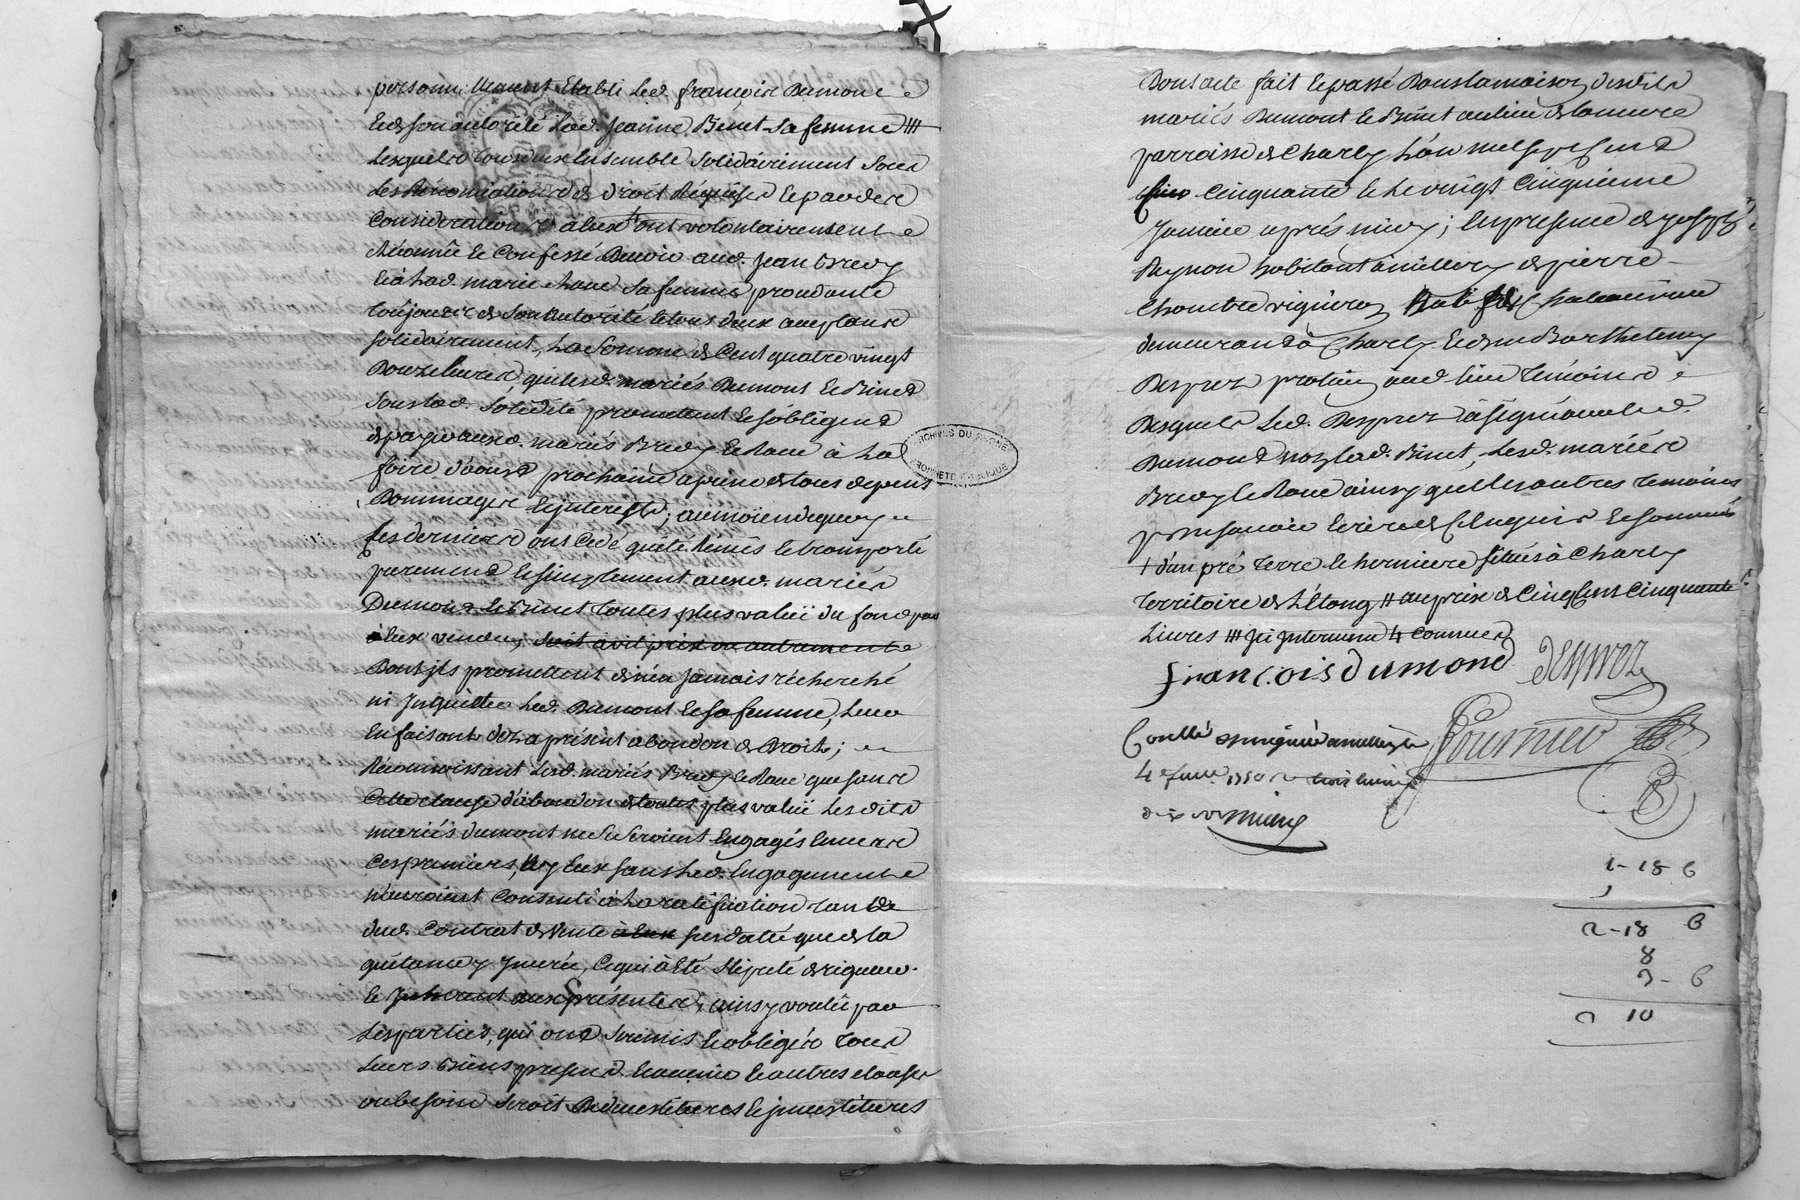 personnellement Etabli Led. françois Dumont
Et de son autorité Lad. jeanne Binet sa femme #
Lesquels tous deux Ensemble solidairement sous
Les Rénonciations de droit Réquises
Considerations ont volontairement
Réconnû Et Confessé Devoir aud. jean Brevy
Et à Lad. marie sa femme procédante
toujours de son autorité Et tous deux acceptants
solidairement, La somme de Cent quatre vingt
Douze livres, que lesd. mariés Dumont Et Binet
sous lad. solidité promettent Et s'obligent
de payer auxd. mariés Brevy Et à La
foire d'aoust prochaine à peine de tous depens
Dommages Et interests; au moïen de quoy
ses derniers ont Cedé quitté Remis Et transporté
purement Et simplement auxd. mariés
Dumont Et Binet toutes plus valuë du fond par
Eux vendu, soit à vil prix ou autrement
Dont ils promettent de rien jamais réchercher
ni Inquiéter Led. Dumont Et sa femme, Leur
En faisant dez à présent abandon de Droits;
Réconnoissant Lesd. mariés Brevy que sans
Cette clause d'abandon de toutes plus valuë Lesdits
mariés dumont ne se seroient Engagés Envers
Ces premiers, Ny Eux sans Led. Engagement
n'auroient Consenti à La ratification tant
dud. Contrat de Vente à Eux que de la
quitance y Inserée, Ce qui à Eté stipulé de rigueur
Et Inherent aux présentes, ainsy voulu par
Les parties, qui ont soumis Et obligés tous
Leurs Biens presens Et avenir Et autres clauses
ou besoin seroit Devestitures Et investitures
Dont acte fait Et passé Dans la maison desdits
mariés Dumont Et Binet au lieu de
parroisse de Charly L'an mil sept cent
Cinquante Et Le vingt Cinquieme
Janvier après midy; En presence de joseph
Reynon habitant à millery de pierre
Chambre vigneron
demeurant à Charly Et de me Barthelemy
Desprez praticien aud. lieu témoins
Desquels Led. Desprez à signé avec led.
Dumont non lad. Binet, Lesd. mariés
Brevy ainsy que Les autres temoins
pour ne savoir Ecrire de Ce Enquis Et sommés
+ d'un pré terre Et herniere situés à Charly
territoire de L'Etang # au prix de Cinq Cent Cinquante
Livres
françois dumond Desprez
Conllé à millery le Fournier
4e fevrier 1750
1 - 18 6
2 - 18 6
8
3 - 6
10
ARCHIVES DU RHONE
PROPRIETE PUBLIQUE